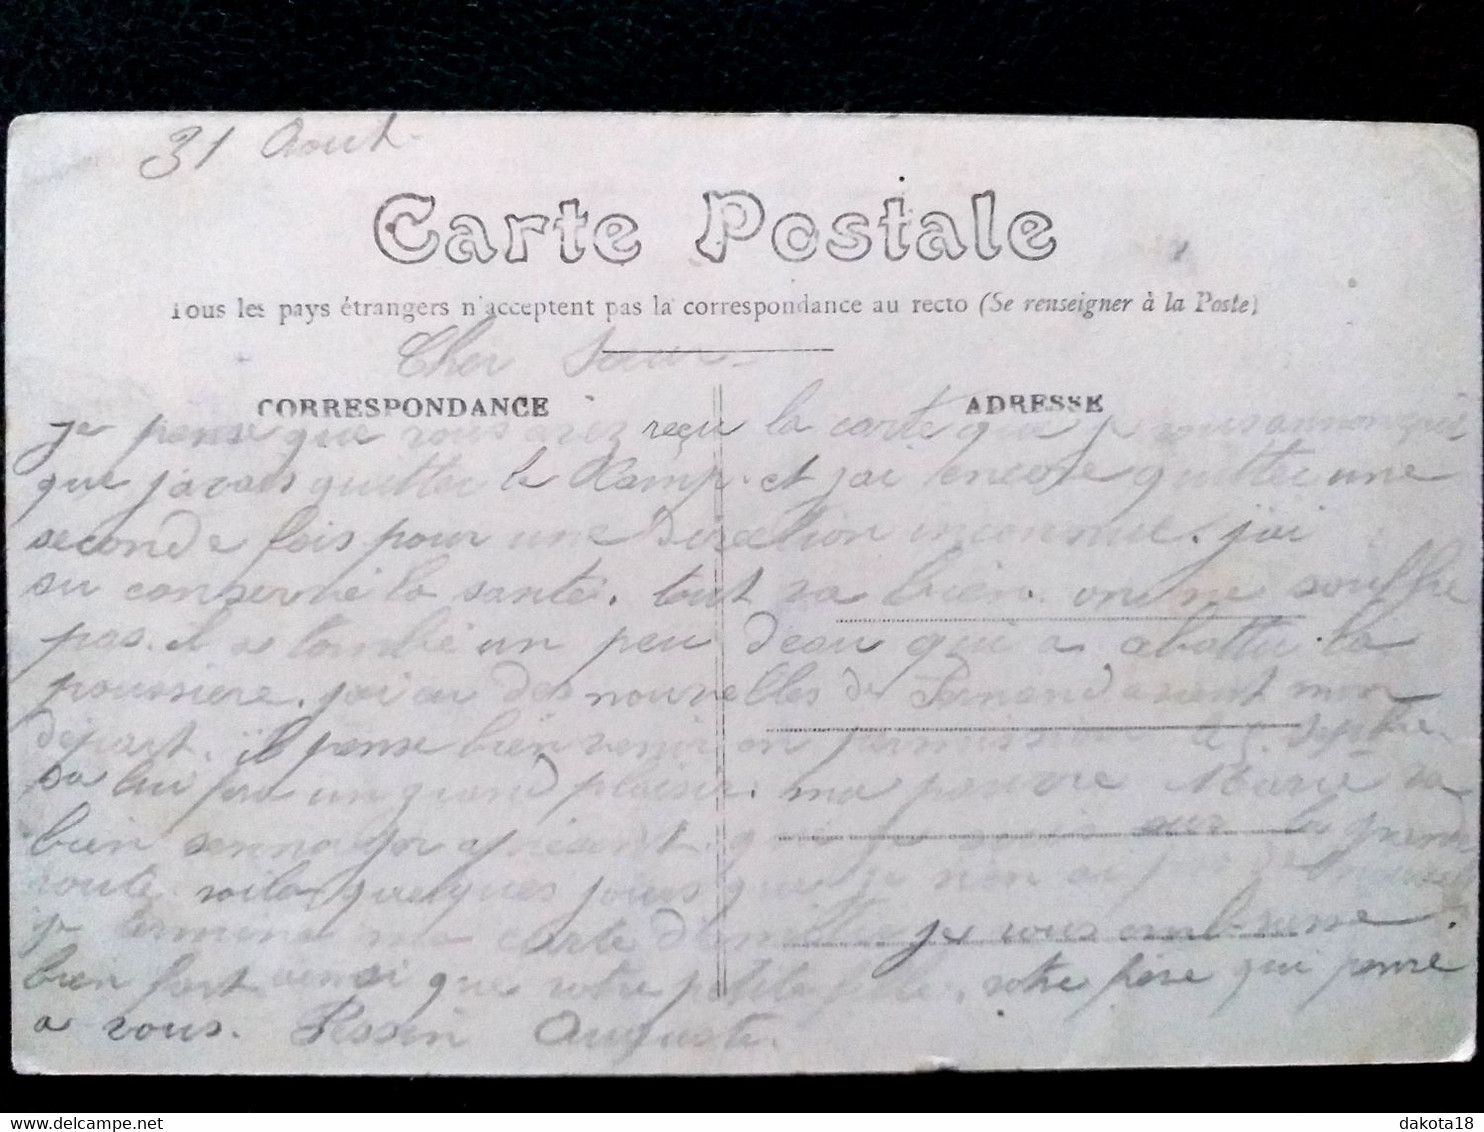 31 Aout.
Carte Postale
Tous les pays étrangers n'acceptent pas la correspondance au recto (Se renseigner à la Poste)
Cher Sœur
CORRESPONDANCE
ADRESSE
je pense que vous avez reçu la carte que je vous annonçais
que javais quitter le Kamp. et jai encore quitter une
seconde fois pour une Direction inconnue. jai
su conservé la santé. tout va bien. on ne souffre
pas. il a tombé un peu deau qui a abattu la
poussiere. jai eu des nouvelles de Fernand avant mon
départ. il pense bien venir en permission le 5. Septbre.
sa lui fra un grand plaisir. ma pauvre Marie va
bien sennoyer que je suis sur la grand
route. voila quelques jours que je nen ai pas de
je termine ma carte d'amitier je vous embrasse.
bien fort ainsi que votre petite fille. votre frère qui pense
a vous. Rosin Auguste.
delcampe.net
dakota18